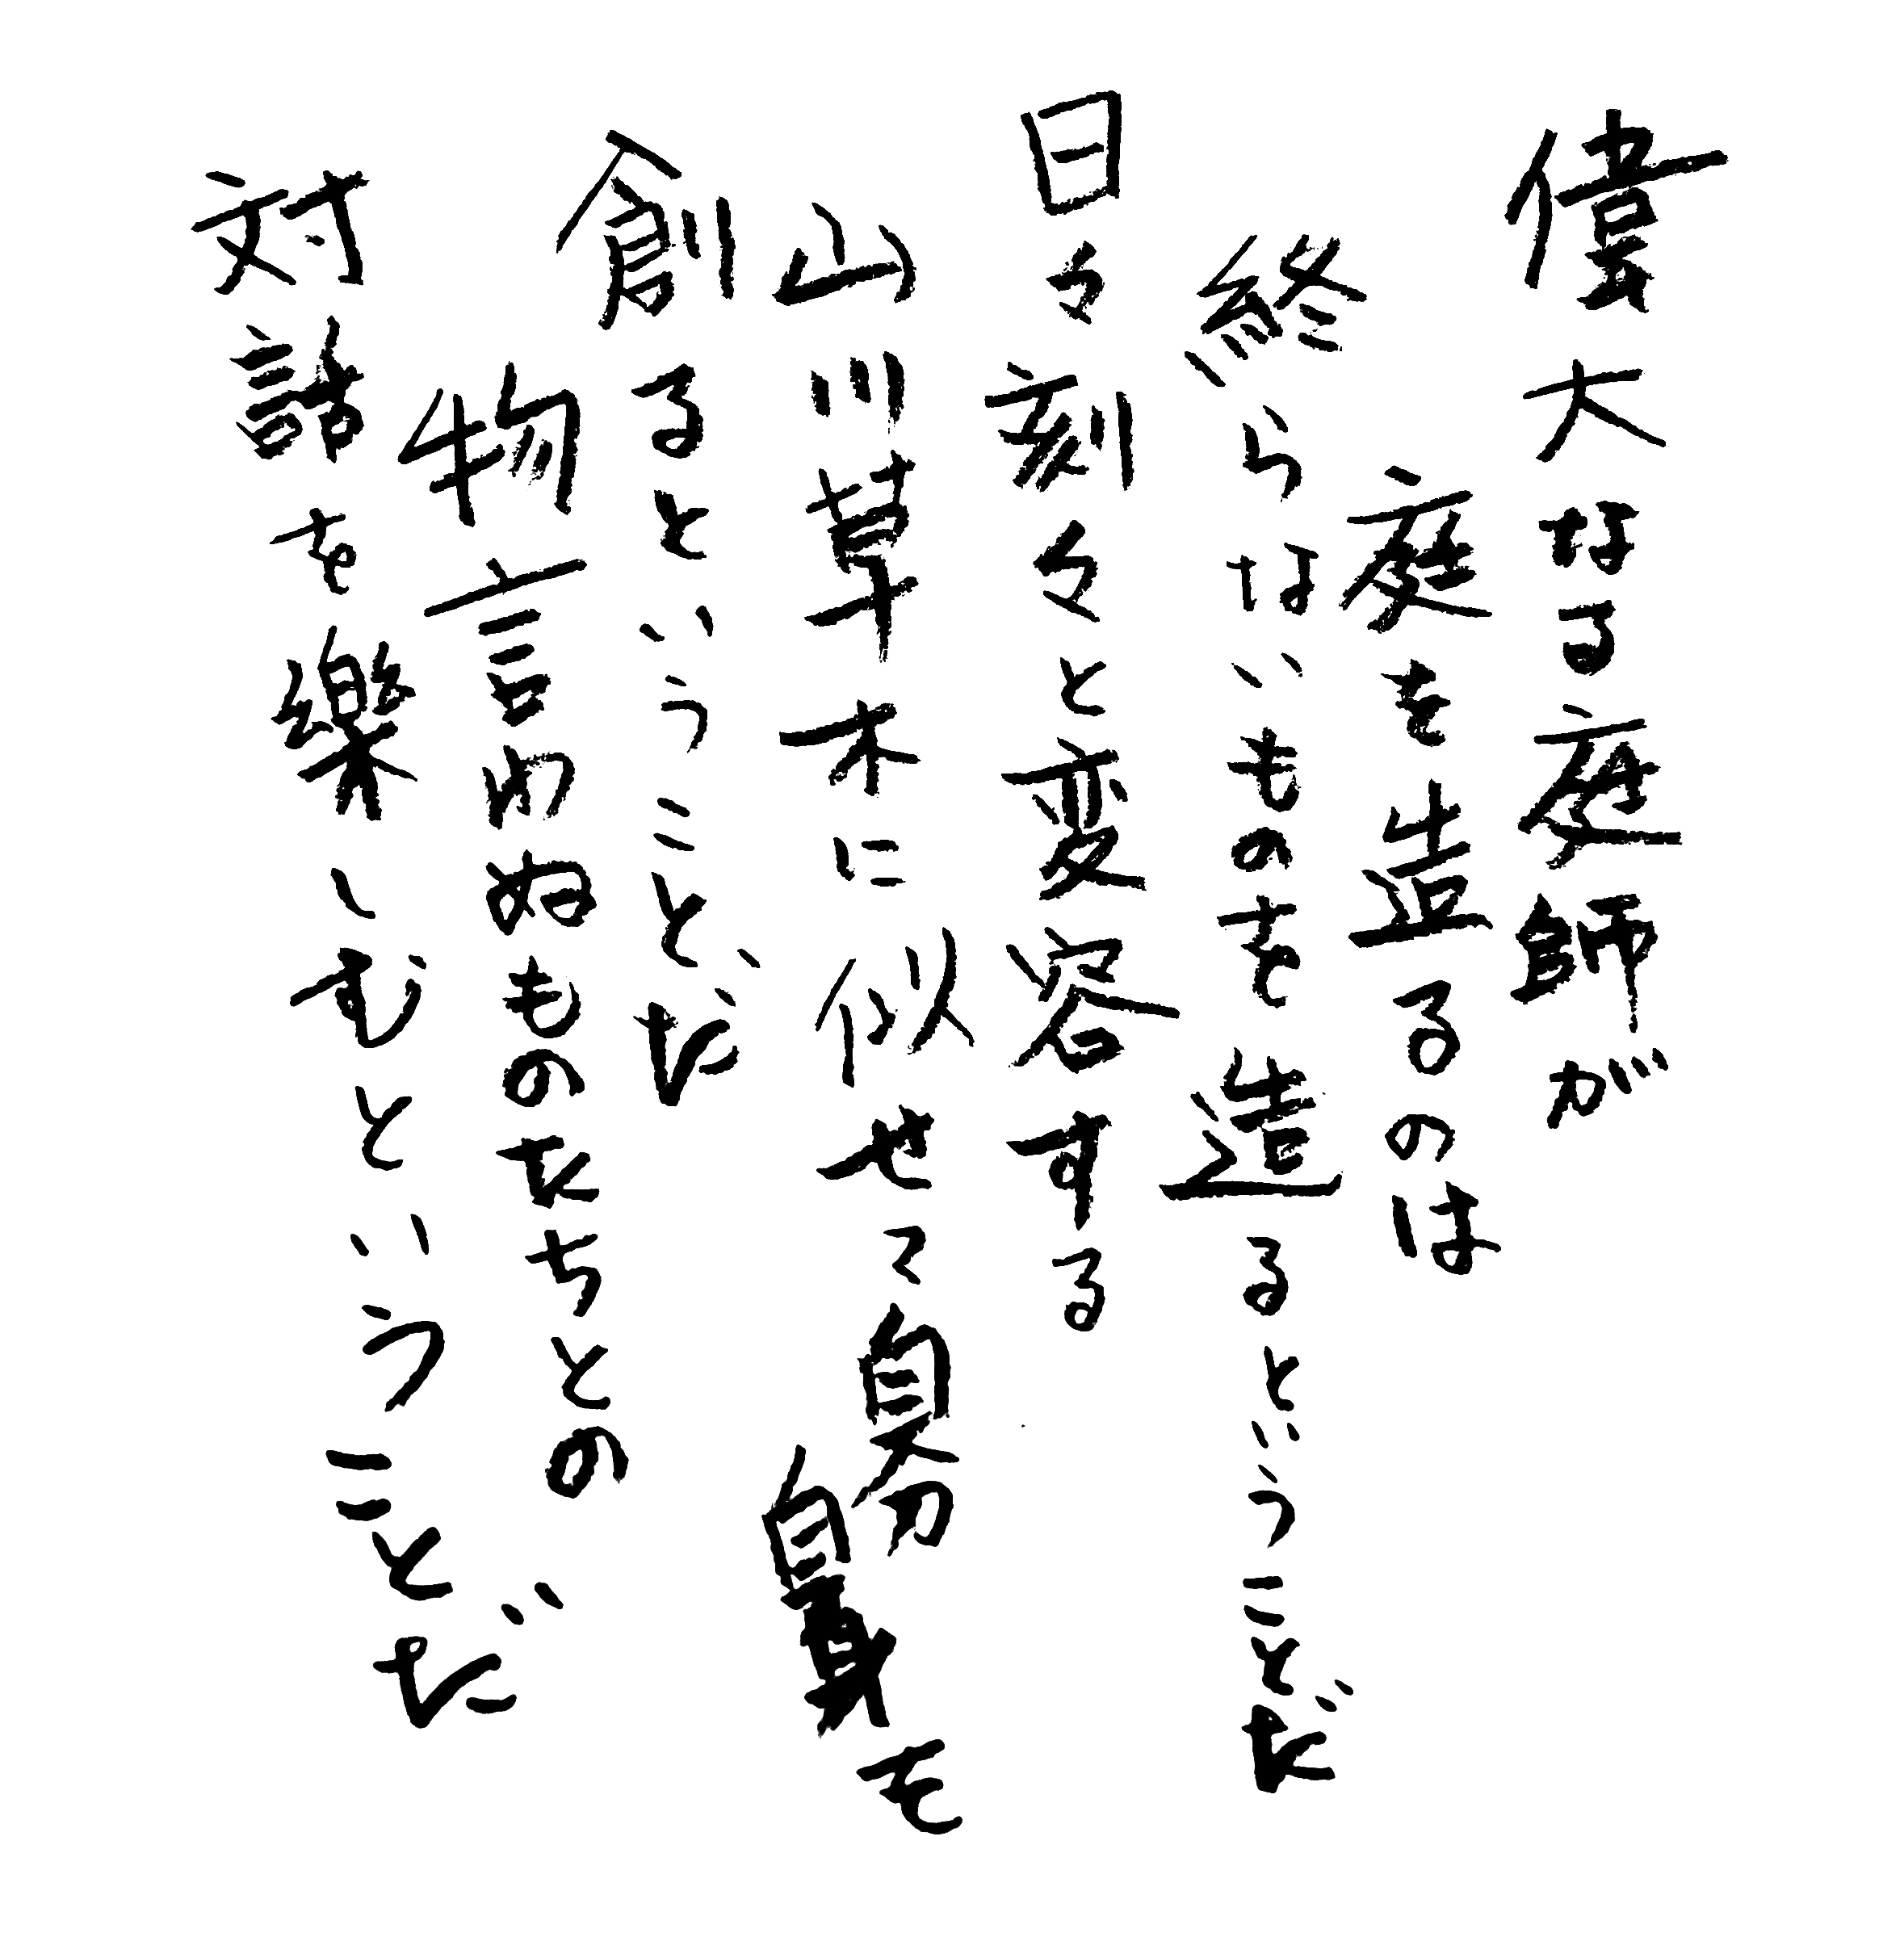 偉大なる庭師が
庭を造るのは
終らないものを造るということだ
日々刻々と変容する
山川草木に似せて自分自身を
創るということだ
物言わぬものたちとの
対話を樂しむということだ